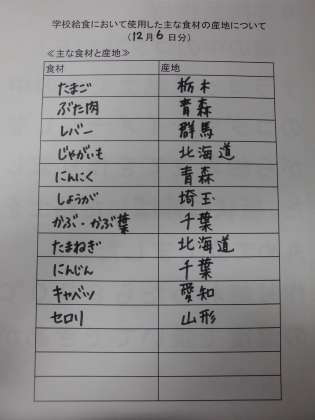 学校給食において使用した主な食材の産地について
（12月6日分）
≪主な食材と産地≫
食材 産地
たまご 栃木
ぶた肉 青森
レバー 群馬
じゃがいも 北海道
にんにく 青森
しょうが 埼玉
かぶ・かぶ葉 千葉
たまねぎ 北海道
にんじん 千葉
キャベツ 愛知
セロリ 山形